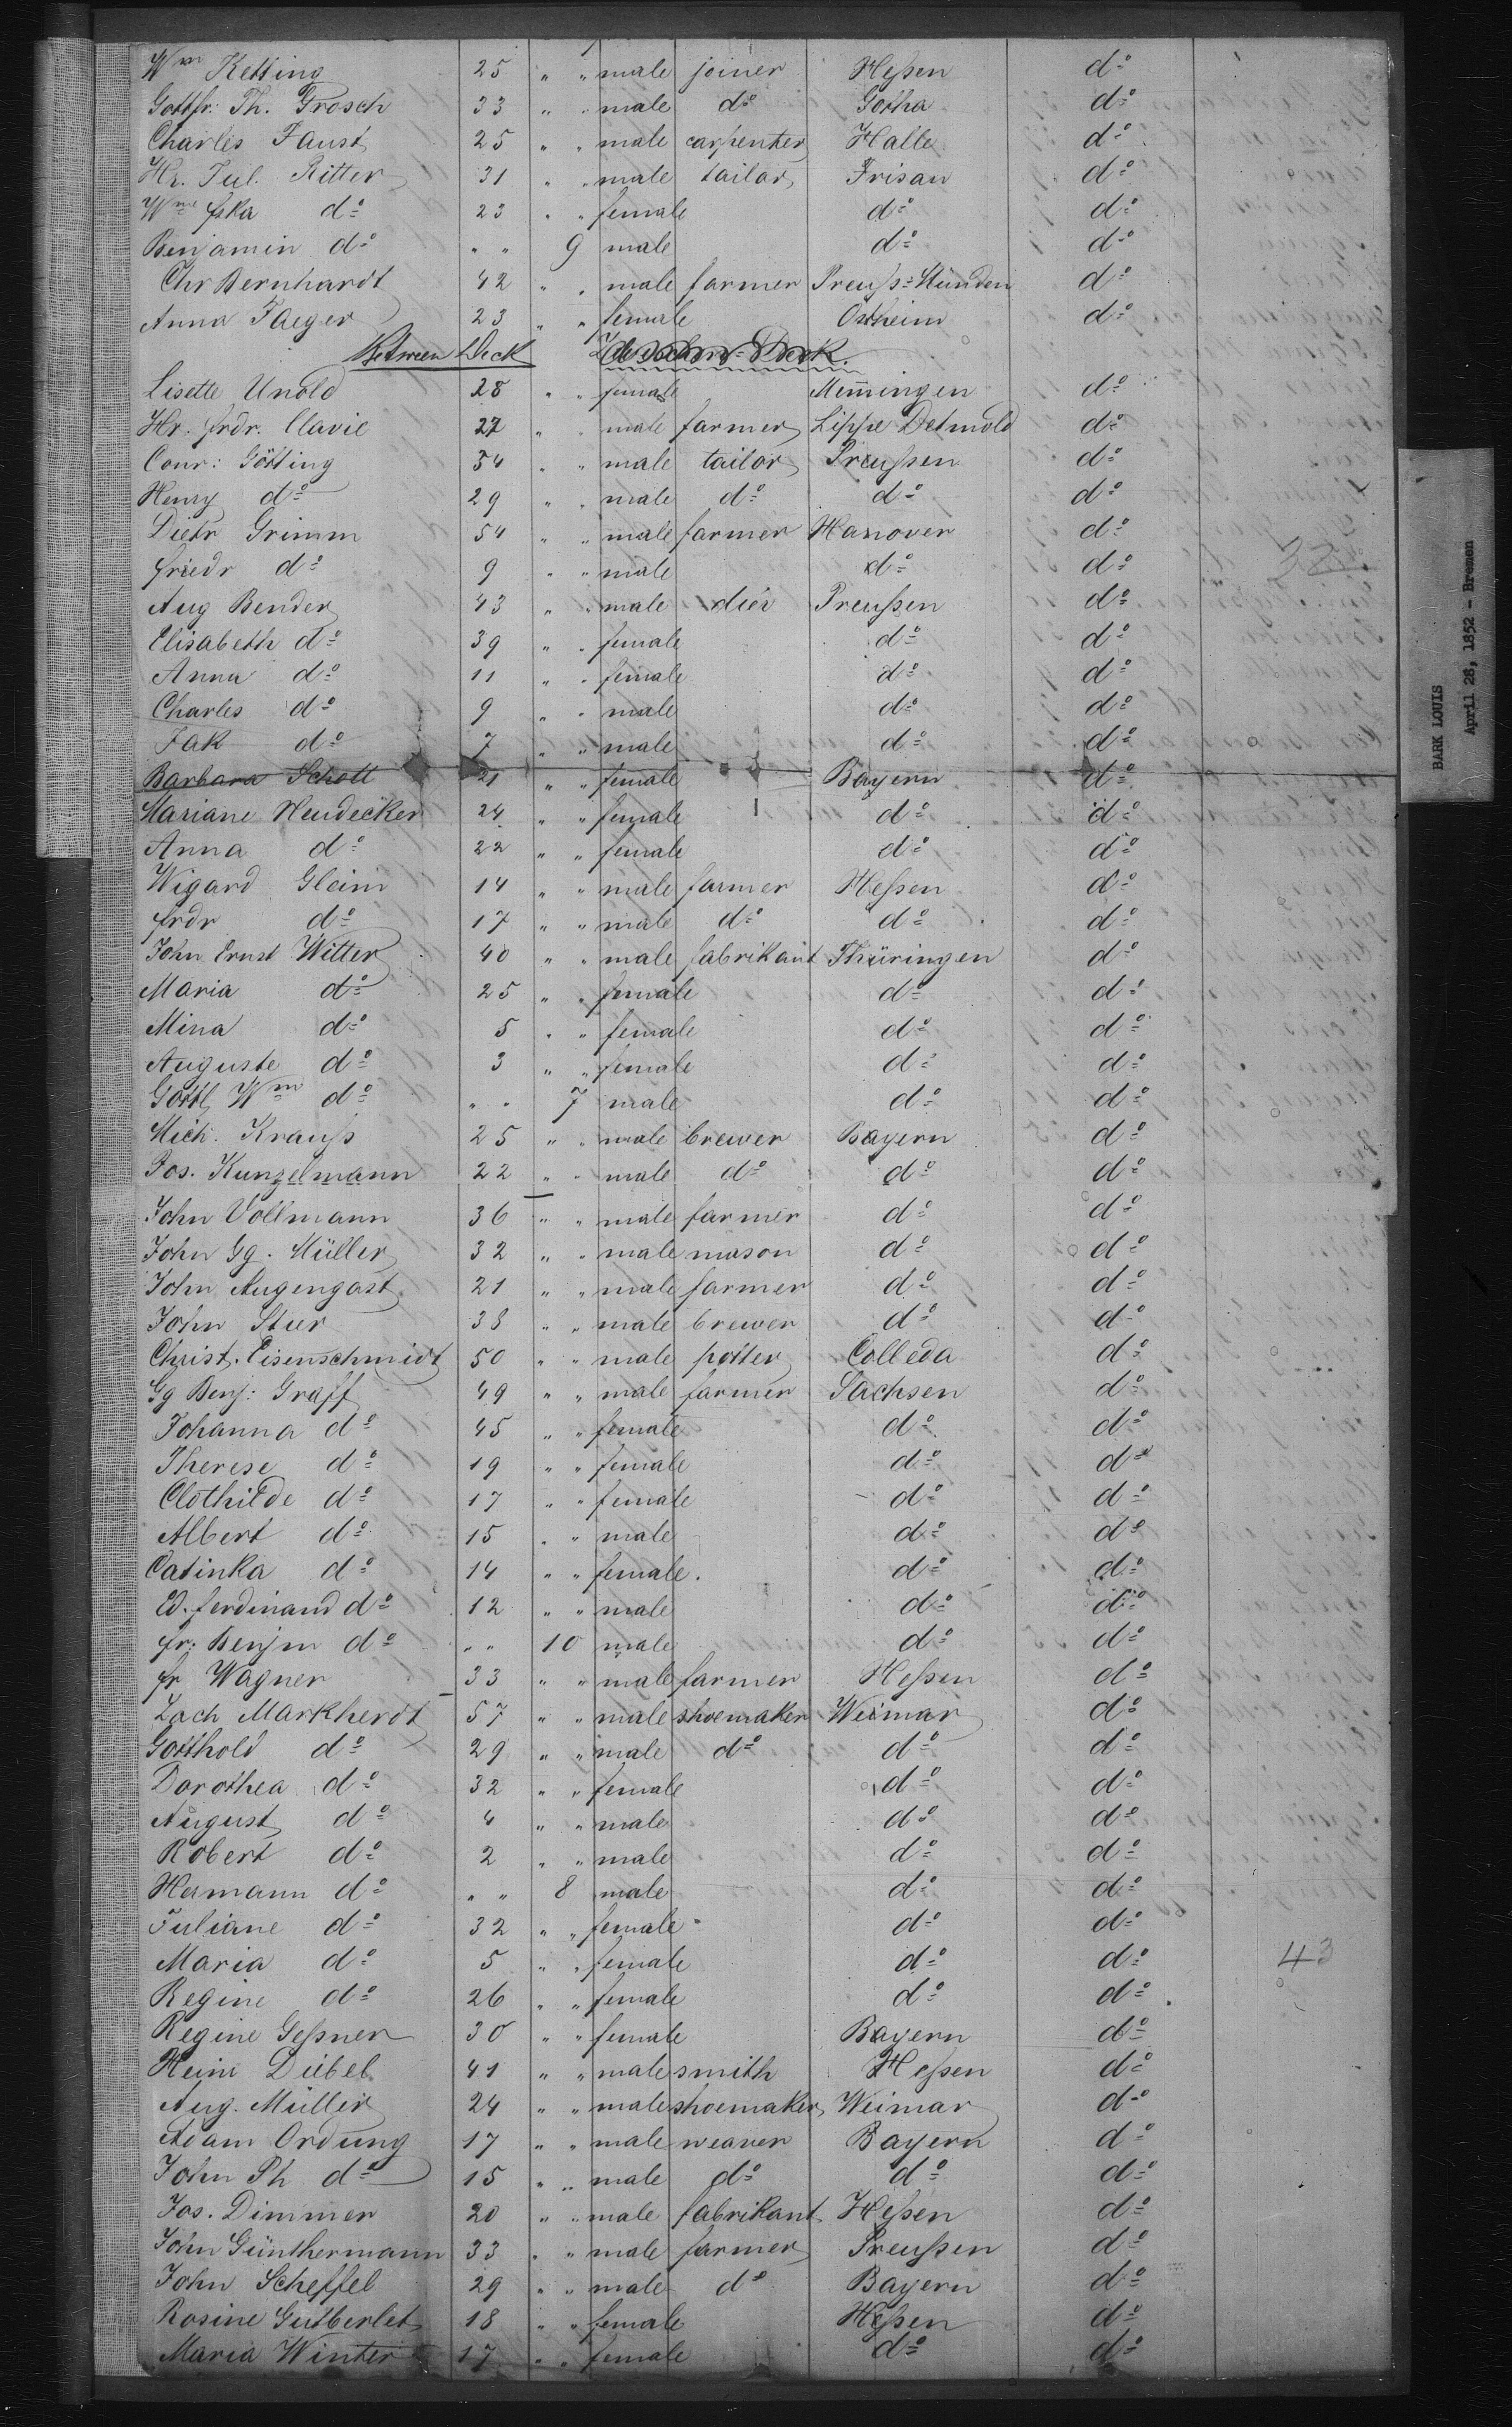 Wm Ketting 25 " " male joiner Heßen do
Gottfr: Th. Grosch 33 " " male do Gotha do
Charles Faust 25 " " male carpenter Halle do
Hr. Jul. Ritter 31 " " male tailor Frisan do
Wme fska do 23 " " female do do
Benjamin do " " 9 male do do
Chr Bernhardt 42 " " male farmer Preuß-Münden do
Anna Jaeger 23 " " female Ostheim do
Between Deck
Lisette Unold 28 " " female Memingen do
Hr. frdr. Clavie 27 " " male farmer Lippe Detmold do
Conr: Götting 54 " " male tailor Preußen do
Henry do 29 " " male do do do
Dietr Grimm 54 " " male farmer Hanover do
friedr do 9 " " male do do
Aug Bender 43 " " male dier Preußen do
Elisabeth do 39 " " female do do
Anna do 11 " " female do do
Charles do 9 " " male do do
Jak do 7 " " male do do
Barbara Schott 21 " " female Bayern do
Mariane Heudecker 24 " " female do do
Anna do 22 " " female do do
Wigard Gleim 14 " " male farmer Heßen do
frdr do 17 " " male do do do
John Ernst Witter 40 " " male fabrikant Thüringen do
Maria do 25 " " female do do
Mina do 5 " " female do do
Auguste do 3 " " female do do
Gottl Wm do " " 7 male do do
Mich. Krauß 25 " " male brewer Bayern do
Jos. Kunzelmann 22 " " male do do do
John Vollmann 36 " " male farmer do do
John Gg. Müller 32 " " male mason do do
John Augengast 21 " " male farmer do do
John Stur 38 " " male brewer do do
Christ. Eisenschmidt 50 " " male potter Colleda do
Gg Benj: Graff 49 " " male farmer Sachsen do
Johanna do 45 " " female do do
Therese do 19 " " female do do
Clothilde do 17 " " female do do
Albert do 15 " " male do do
Catinka do 14 " " female. do do
Ed. ferdinand do 12 " " male do do
fr: Benjm do " " 10 male do do
fr Wagner 33 " " male farmer Heßen do
Zach Markherdt 57 " " male shoemaker Weimar do
Gotthold do 29 " " male do do do
Dorothea do 32 " " female do do
August do 4 " " male do do
Robert do 2 " " male do do
Hermann do " " 8 male do do
Juliane do 32 " " female do do
Maria do 5 " " female do do 43
Regine do 26 " " female do do
Regine Geßner 30 " " female Bayern do
Heinr Deibel 41 " " male smith Heßen do
Aug. Müller 24 " " male shoemaker Weimar do
Adam Ordung 17 " " male weaver Bayern do
John Ph do 15 " " male do do do
Jos. Dimmer 20 " " male fabrikant Heßen do
John Günthermann 33 " " male farmer Preußen do
John Scheffel 29 " " male do Bayern do
Rosine Gutberlet 18 " " female Heßen do
Maria Winter 17 " " female do do
BARK LOUIS
April 28, 1852 - Bremen